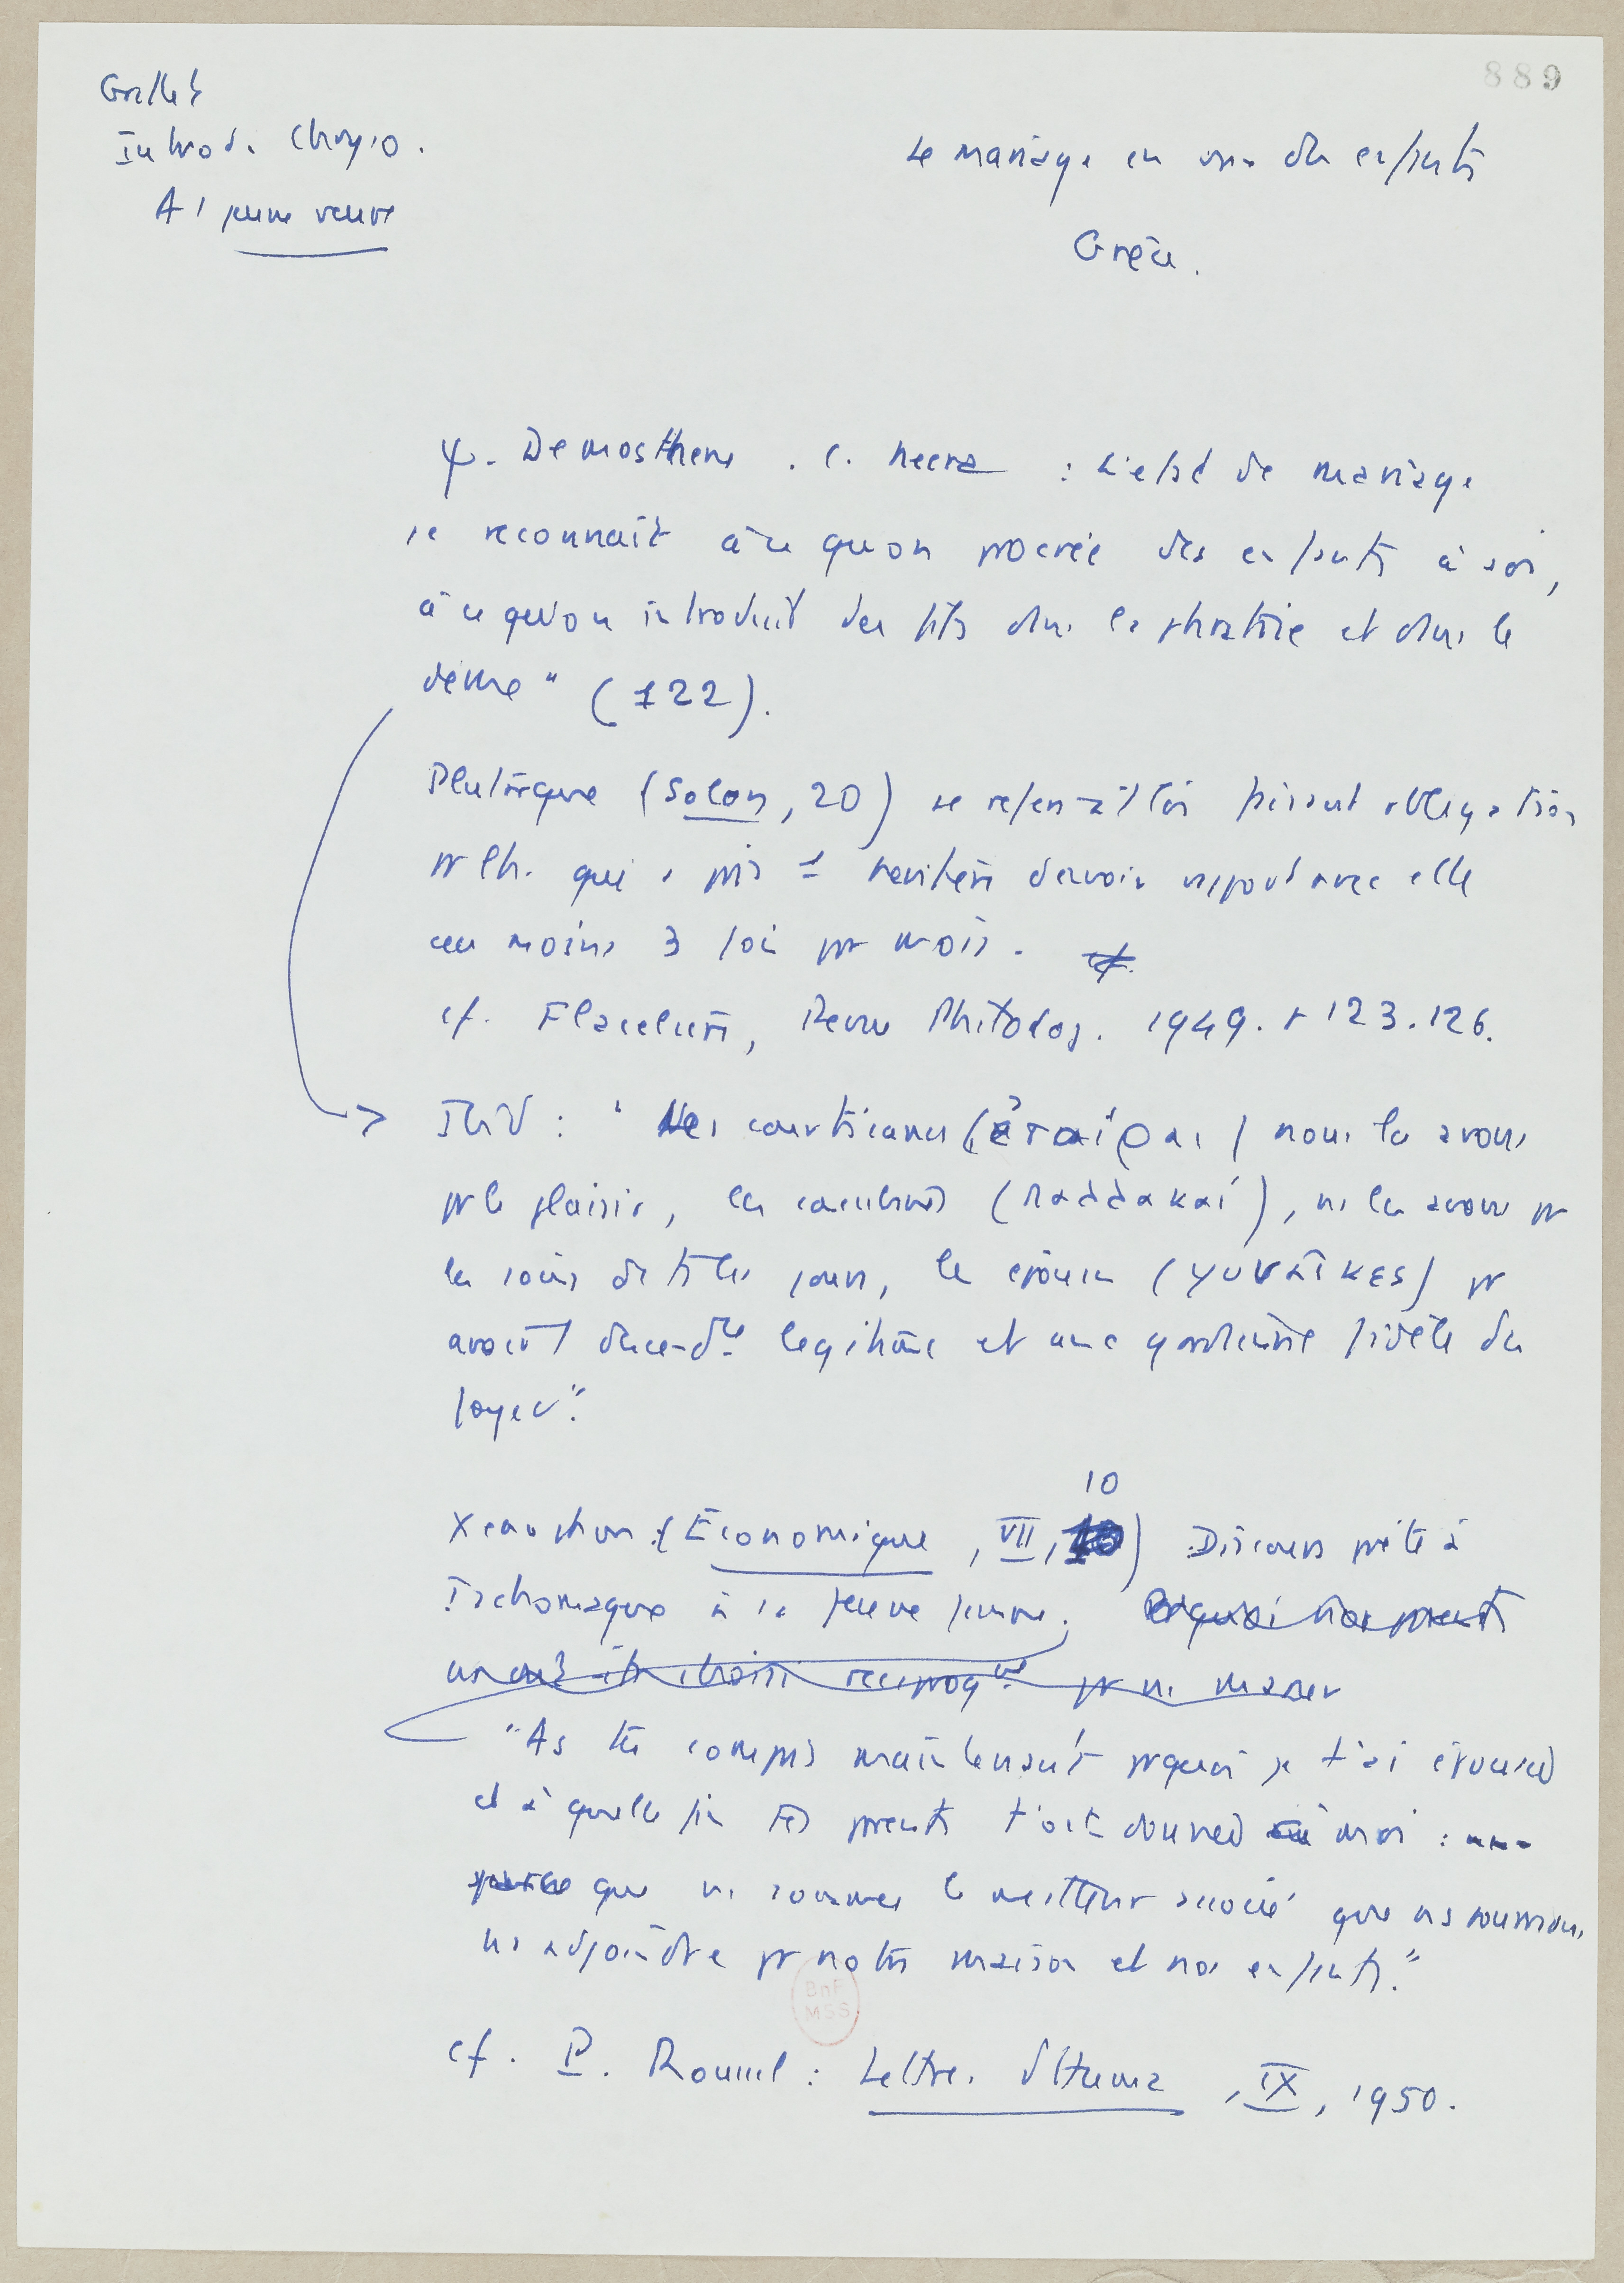 889
Grillet
Introd. Chryso.
A 1 jeune veuve
Le mariage en vue des enfants
Grèce.
ψ. Demosthene . C. Neera : L'etat de mariage
se reconnait à ce qu'on procrée des enfants à soi,
à ce qu'on introduit des fils dans la phratrie et dans le
dème" (122).
Plutarque (Solon, 20) se refere à 1 loi faisant obligation
pr l'h. qui a pris 1 heritière d'avoir rapport avec elle
au moins 3 fois pr mois.
cf. Flacelière, Revue Philolog. 1949. p 123.126.
Ibid : " Les courtisanes (ἑταίραι) nous les avons
pr le plaisir, les concubines (παλλακαί), ns les avons pr
les soins de ts les jours, les épouses (γυναῖκες) pr
avoir 1 descendce legitime et une gardienne fidèle du
foyer".
10
Xenophon (Economique, VII, ) Discours prêté à
Ischomaque à sa jeune femme. Pourquoi nos parents
ns ont ils choisi reciproqt pr ns marier
"As tu compris maintenant pquoi je t'ai épousée
et à quelle fin tes parents t'ont donnée à moi :
parce que ns sommes le meilleur associé que ns pouvions
ns adjoindre pr notre maison et nos enfants."
cf. P. Roussel : Lettres d'humanité, IX, 1950.
BnF
MSS